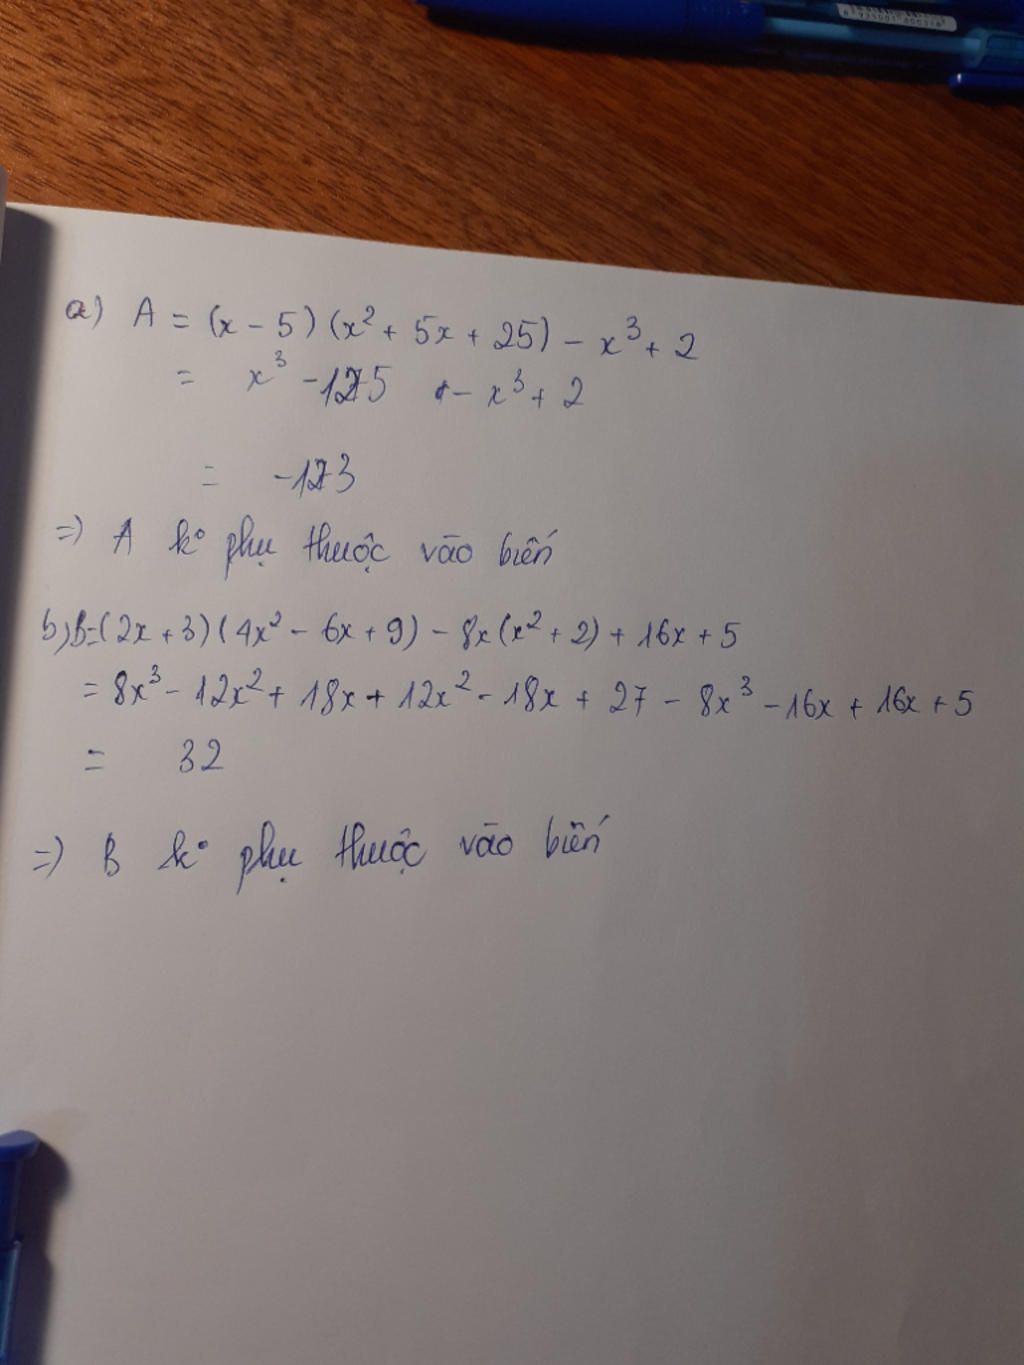 8 935001 800378
a) A = (x - 5) (x² + 5x + 25) - x³ + 2
= x³ - 125 - x³ + 2
= -123
=) A k° phụ thuộc vào biến
b) B=(2x + 3) (4x² - 6x + 9) - 8x (x² + 2) + 16x + 5
= 8x³ - 12x² + 18x + 12x² - 18x + 27 - 8x³ - 16x + 16x + 5
= 32
=) B k° phụ thuộc vào biến